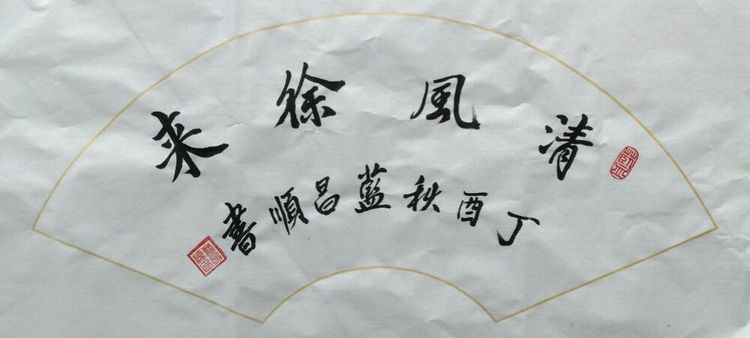 清風徐来
丁酉秋藍昌順書